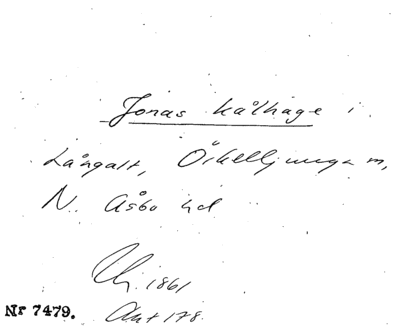 Jonas Kålhage i
Långalt, Örkelljunga m,
N. Åsbo hd
1861
Nr 7479. Akt 178.